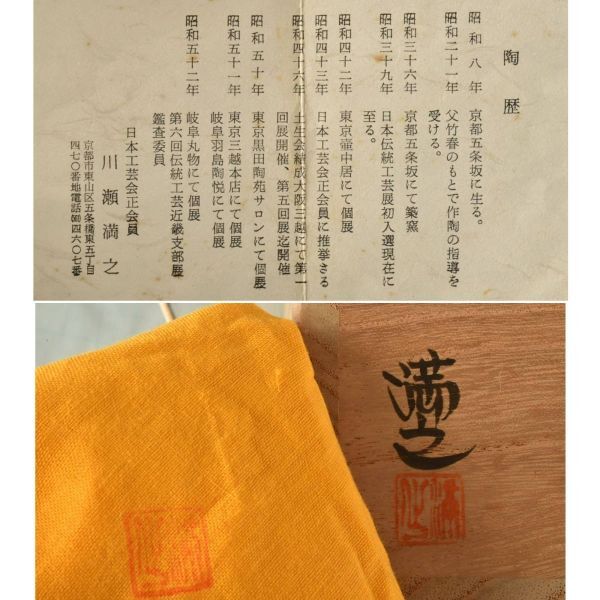 陶歴
昭和八年 京都五条坂に生る。
昭和二十一年 父竹春のもとで作陶の指導を
受ける。
昭和三十六年 京都五条坂にて築窯
昭和三十九年 日本伝統工芸展初入選現在に
至る。
昭和四十二年 東京壷中居にて個展
昭和四十三年 日本工芸会正会員に推挙さる
昭和四十六年 土生会結成大阪三越にて第一
回展開催、第五回展迄開催
昭和五十年 東京黒田陶苑サロンにて個展
昭和五十一年 東京三越本店にて個展
岐阜羽島陶悦にて個展
昭和五十二年 岐阜丸物にて個展
第六回伝統工芸近畿支部展
鑑査委員
日本工芸会正会員
川瀬満之
京都市東山区五条橋東五丁目
四七〇番地電話㈲四六〇七番
満之
満之
満之